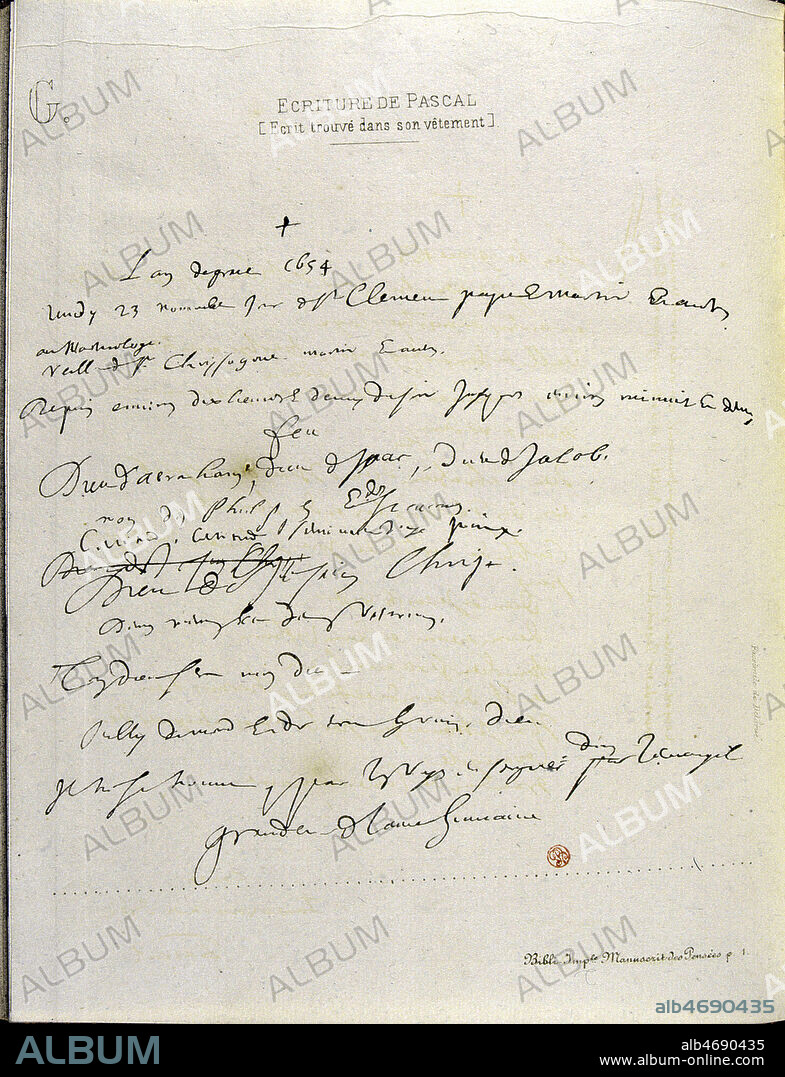 G.
ECRITURE DE PASCAL
[Ecrit trouvé dans son vêtement]
L'an de grace 1654
Lundy 23 novembre Jour de St Clement pape et martir et autres
au Martirologe.
veille de St Chrisogone martir et autres,
Depuis environ dix heures et demy du soir Jusques environ minuit et demy
feu
Dieu d'abraham, dieu d'Isaac, Dieu de Jacob,
non des Philosophes et des sçavans.
Certitude, certitude, sentiment, Joye, paix.
Dieu de Jesus Christ.
Deum meum et deum vestrum,
Ton dieu sera mon dieu
oubly du monde et de tout hormis dieu
Il ne se trouve que par les voyes enseignées dans l'evangile
grandeur de l'ame humaine
Bibl. Imple Manuscrit des Pensées p 1
ALBUM
alb4690435
ALBUM
alb4690435
www.album-online.com